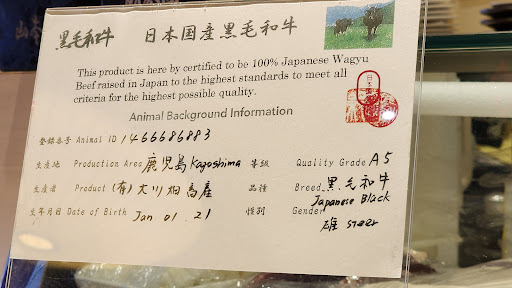 黒毛和牛 日本国産黒毛和牛
This product is here by certified to be 100% Japanese Wagyu
Beef raised in Japan to the highest standards to meet all
criteria for the highest possible quality.
Animal Background Information
登録番号 Animal ID 1466686883
生産地 Production Area 鹿児島 Kagoshima 等級 Quality Grade A5
生産者 Product (有)大川畑畜産 品種 Breed 黒毛和牛
Japanese Black
生年月日 Date of Birth Jan. 01. 21 性別 Gender
雄 steer